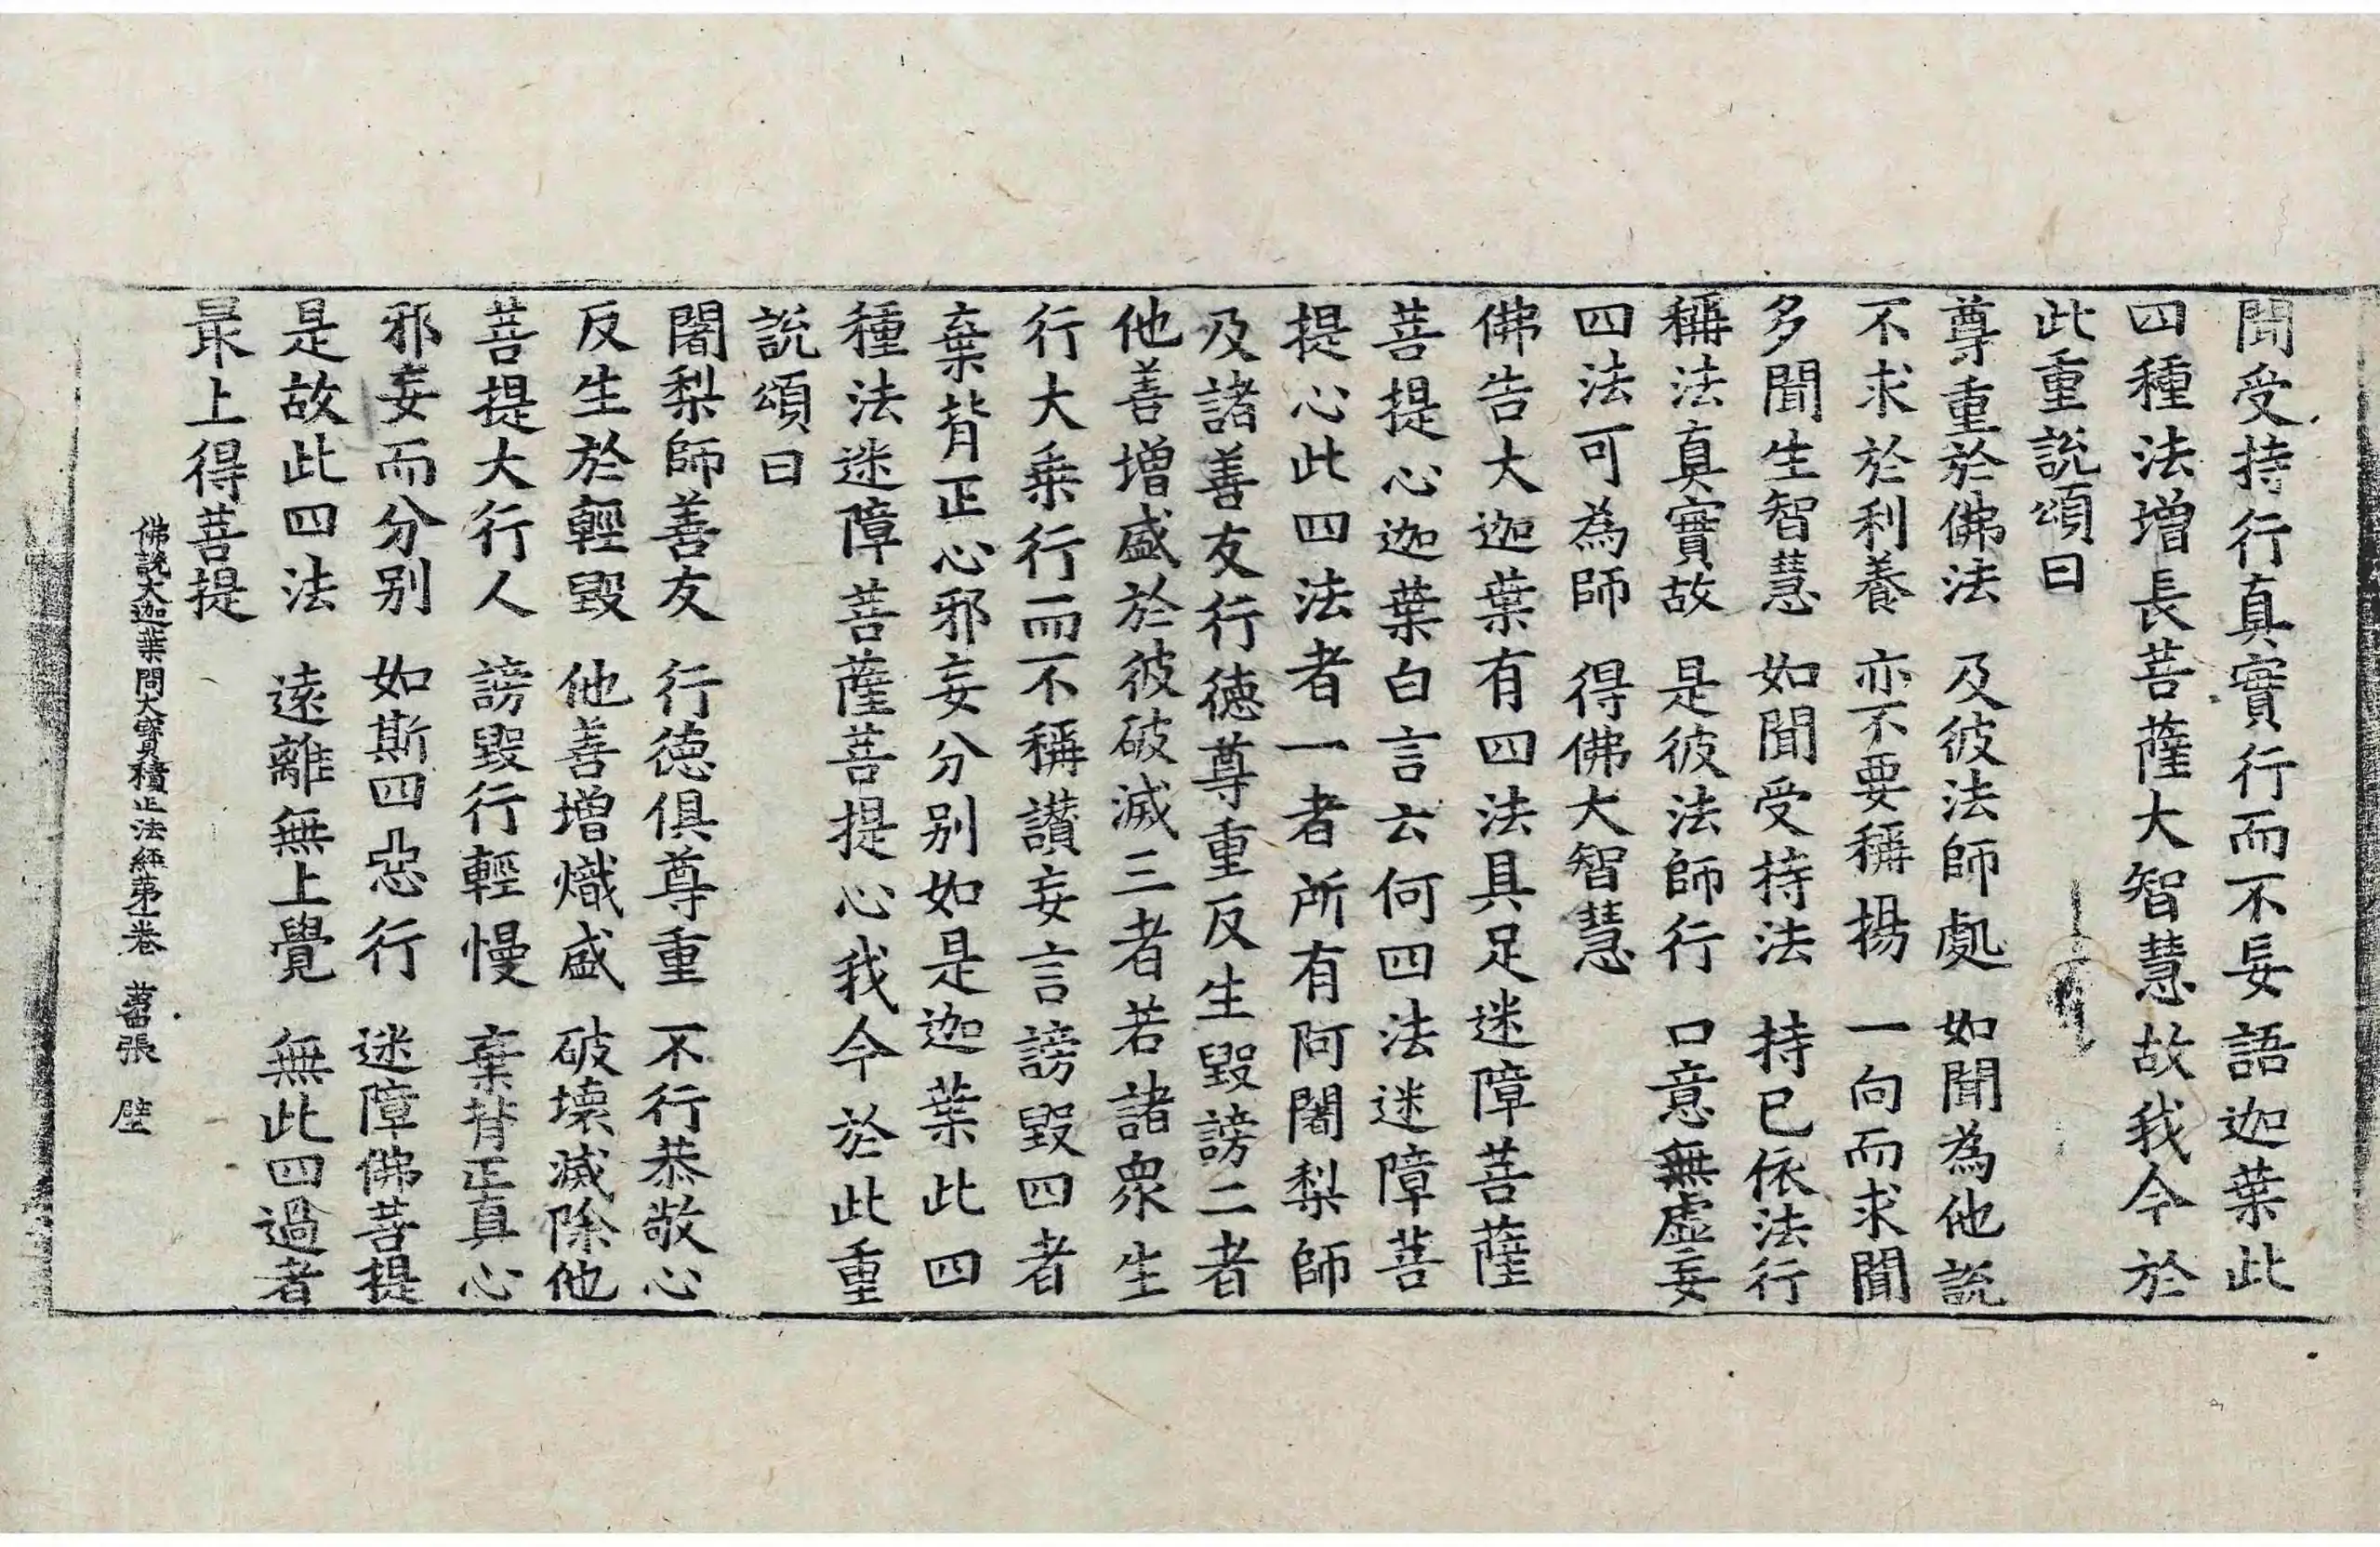 聞受持行真實行而不妄語迦葉此
四種法增長菩薩大智慧故我今於
此重說頌曰
尊重於佛法　及彼法師處　如聞為他說
不求於利養　亦不要稱揚　一向而求聞
多聞生智慧　如聞受持法　持已依法行
稱法真實故　是彼法師行　口意無虛妄
四法可為師　得佛大智慧
佛告大迦葉有四法具足迷障菩薩
菩提心迦葉白言云何四法迷障菩
提心此四法者一者所有阿闍梨師
及諸善友行德尊重反生毀謗二者
他善增盛於彼破滅三者若諸衆生
行大乘行而不稱讚妄言謗毀四者
棄背正心邪妄分别如是迦葉此四
種法迷障菩薩菩提心我今於此重
說頌曰
闍梨師善友　行德俱尊重　不行恭敬心
反生於輕毀　他善增熾盛　破壞滅除他
菩提大行人　謗毀行輕慢　棄背正真心
邪妄而分别　如斯四惡行　迷障佛菩提
是故此四法　遠離無上覺　無此四過者
最上得菩提
佛說大迦葉問大寶積正法經第一卷　張　壁